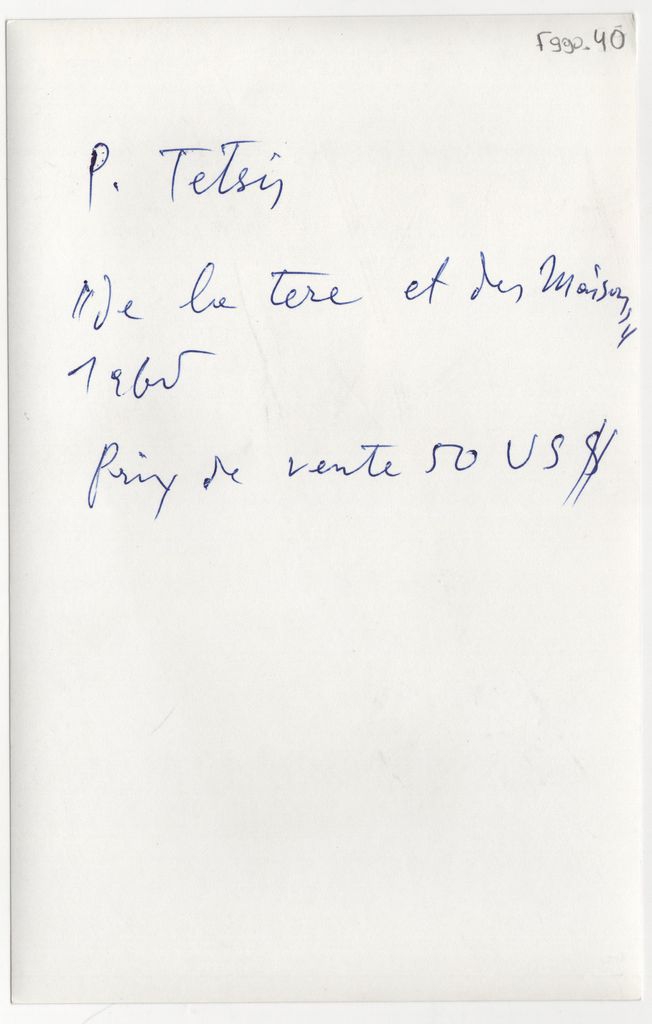 F990.40
P. Tetsis
"De la tere et des Maisons"
1965
Prix de vente 50 US $